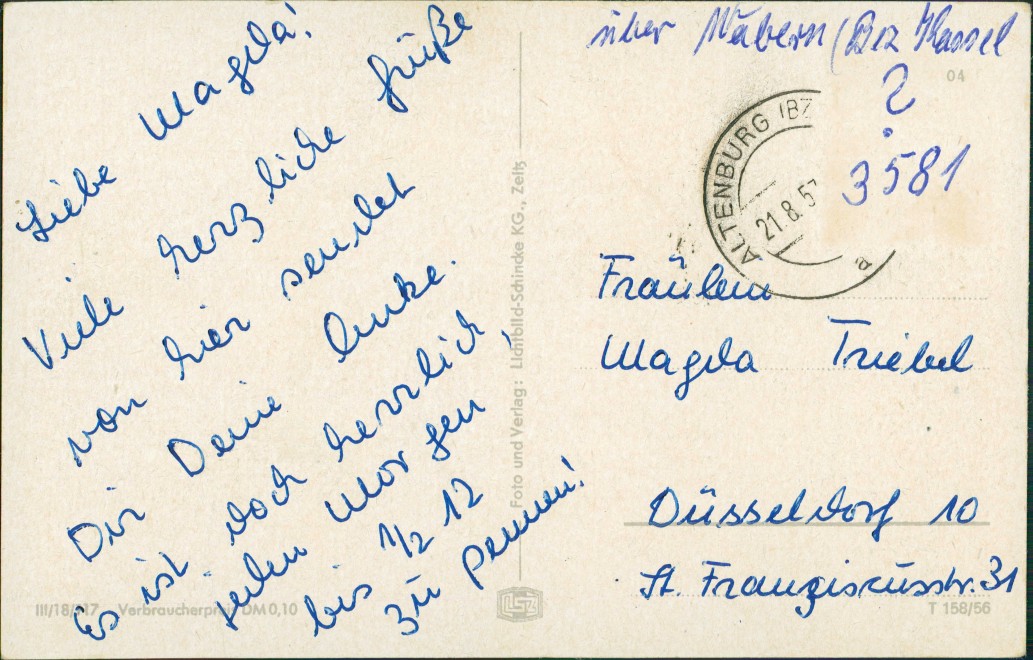 Liebe Magda!
Viele herzliche Grüße
von hier sendet
Dir Deine Imke.
Es ist doch herrlich,
jeden Morgen
bis 1/2 12
zu pennen!
Foto und Verlag: Lichtbild-Schincke KG., Zeitz
III/18/ Verbraucherpreis DM 0,10
LSZ
über Wabern (Bez Kassel
04
?
3581
ALTENBURG (BZ
21.8.57
a
Fräulein
Magda Triebel
Düsseldorf 10
St. Franziskusstr. 31
T 158/56